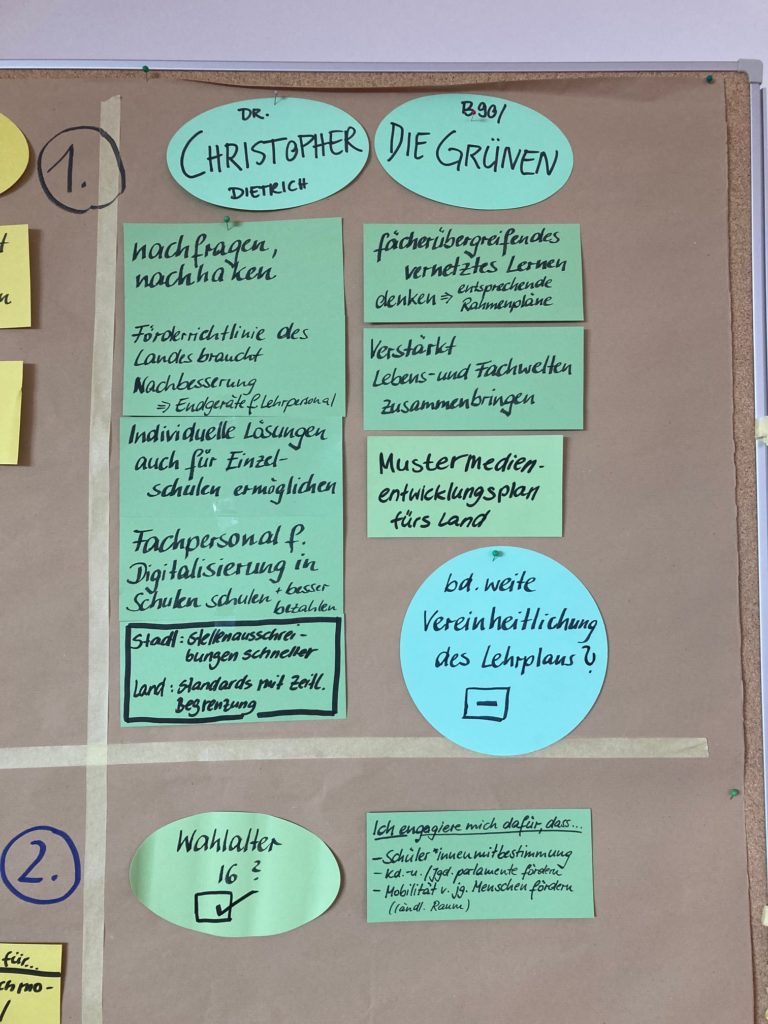 1.
DR.
CHRISTOPHER
DIETRICH
B90/
DIE GRÜNEN
nachfragen,
nachhaken
Förderrichtlinie des
Landes braucht
Nachbesserung
=> Endgeräte f. Lehrpersonal
Individuelle Lösungen
auch für Einzel-
schulen ermöglichen
Fachpersonal f.
Digitalisierung in
Schulen schulen + besser
bezahlen
Stadt: Stellenausschrei-
bungen schneller
Land: Standards mit zeitl.
Begrenzung
fächerübergreifendes
vernetztes Lernen
denken => entsprechende
Rahmenpläne
Verstärkt
Lebens- und Fachwelten
zusammenbringen
Mustermedien-
entwicklungsplan
fürs Land
bd. weite
Vereinheitlichung
des Lehrplans?
–
2.
Wahlalter
16?
Ich engagiere mich dafür, dass...
- Schüler*innenmitbestimmung
- Kd.- u. Jgd. parlamente fördern
- Mobilität v. jg. Menschen fördern
(ländl. Raum)
für...